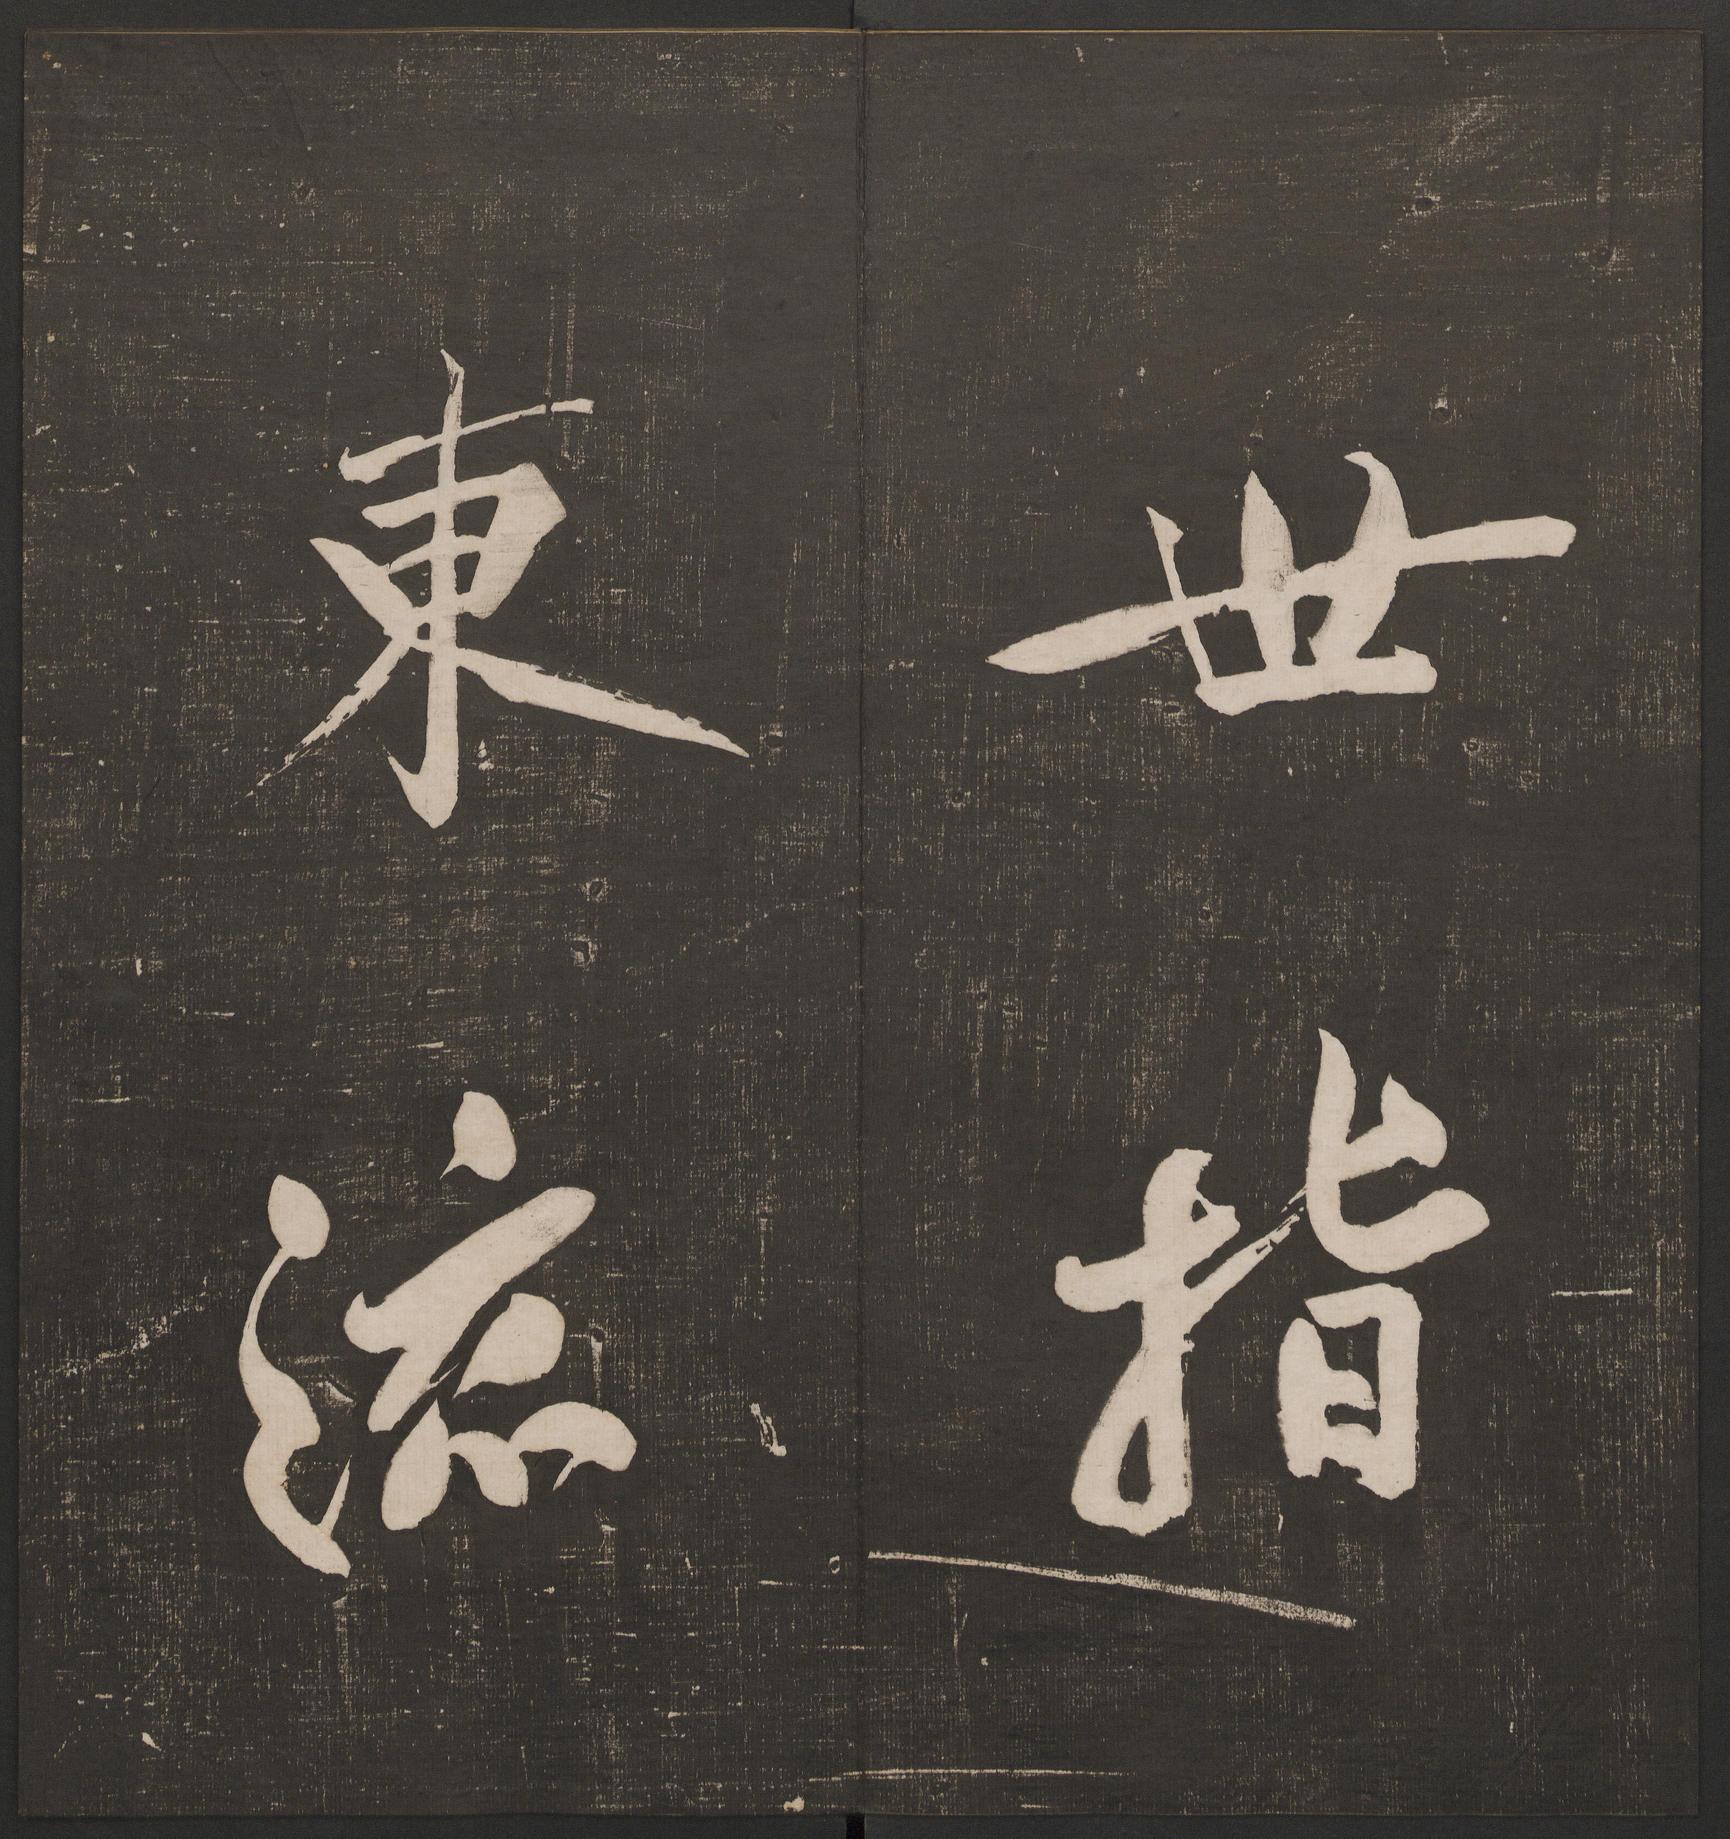 世指
東流